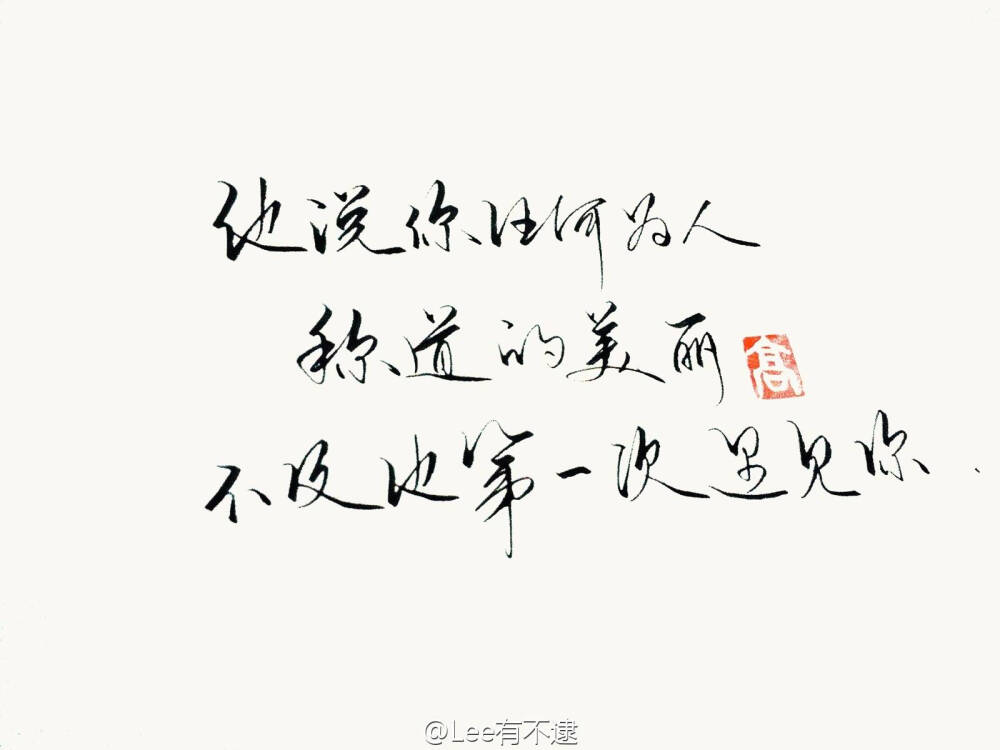 他说你任何为人
称道的美丽
高
不及他第一次遇见你.
@Lee有不逮